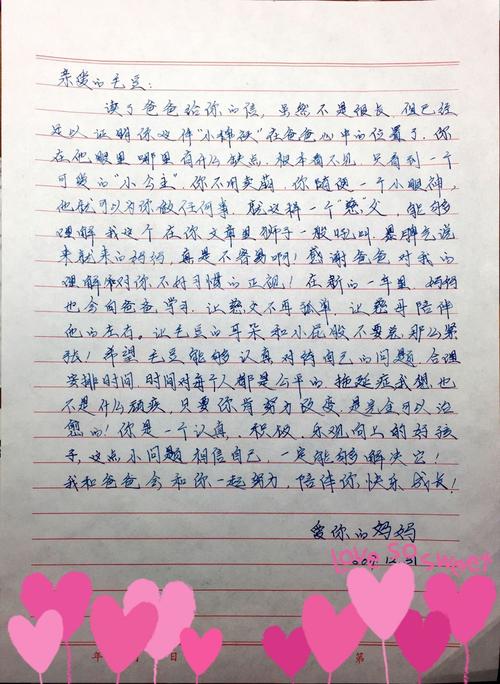 亲爱的毛豆：
读了爸爸给你的信，虽然不是很长，但已经
足以证明你这件“小棉袄”在爸爸心中的位置了，你
在他眼里哪里有什么缺点，根本看不见，只看到一个
可爱的“小公主”你不用卖萌，你随便一个小眼神，
他就可以为你做任何事，就这样一个“慈父”，能够
理解我这个在你文章里狮子一般吼叫，暴脾气说
来就来的妈妈，真是不容易啊！感谢爸爸对我的
理解和对你不好习惯的正视！在新的一年里，妈妈
也会向爸爸学习，让慈父不再孤单，让慈母陪伴
他的左右。让毛豆的耳朵和小屁股不要总那么紧
张！希望毛豆能够认真对待自己的问题，合理
安排时间，时间对每个人都是公平的，拖延症我想也
不是什么顽疾，只要你肯努力改变，是完全可以治
愈的！你是一个认真，积极，乐观向上的好孩
子，这点小问题相信自己，一定能够解决它！
我和爸爸会和你一起努力，陪伴你快乐成长！
爱你的妈妈
love so sweet
年 日 第